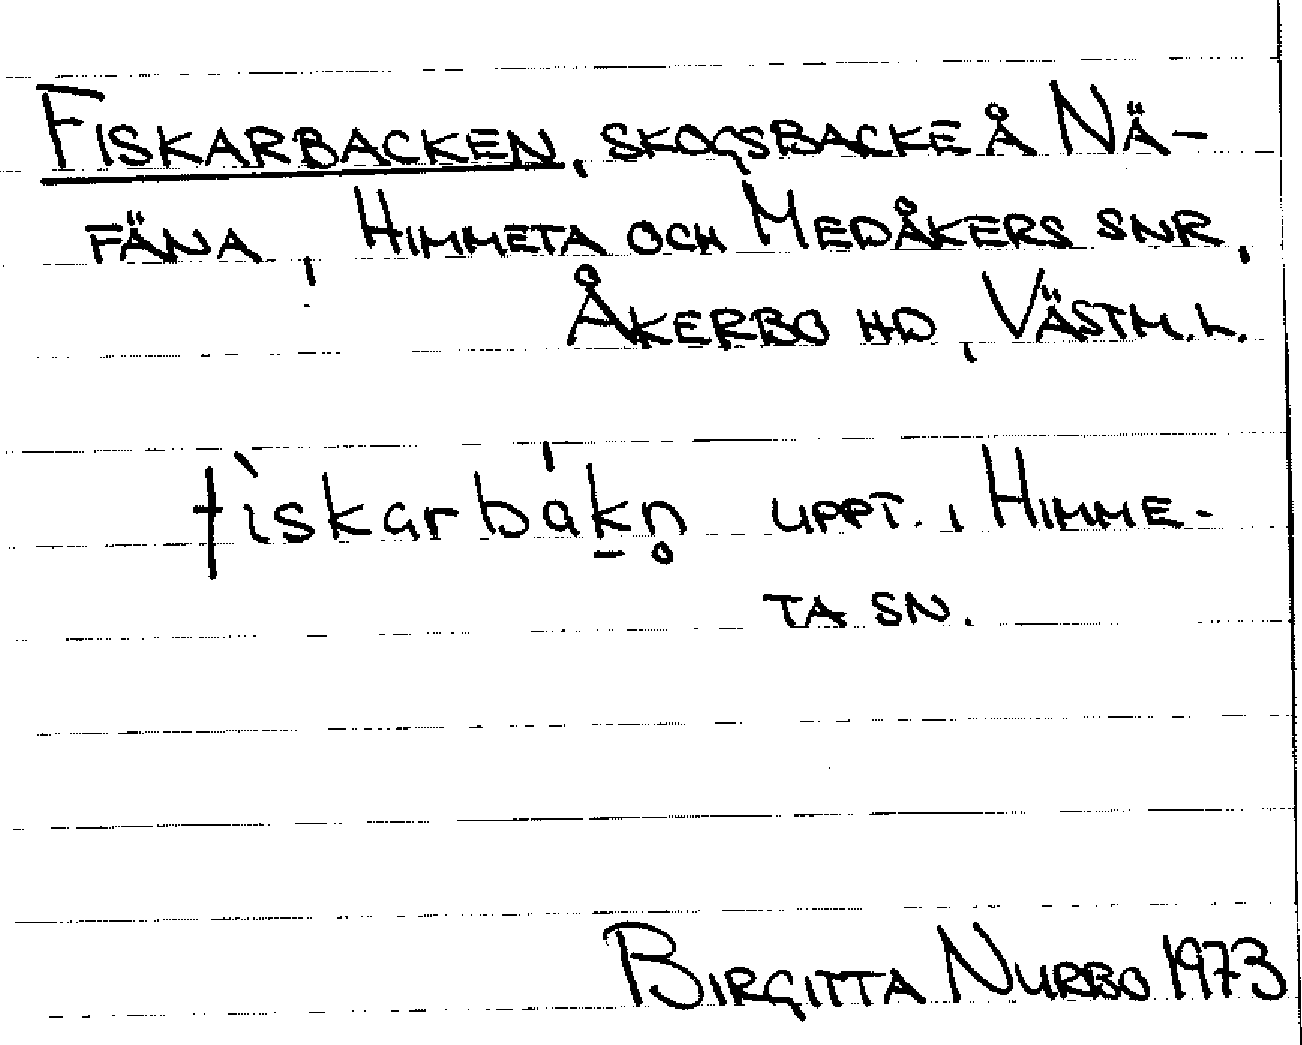 FISKARBACKEN, SKOGSBACKE Å NÄ-
FÄNA, HIMMETA OCH MEDÅKERS SNR,
ÅKERBO HD, VÄSTM. L.
fìskarbák̠n̥ UPPT. I HIMME-
TA SN.
BIRGITTA NURBO 1973